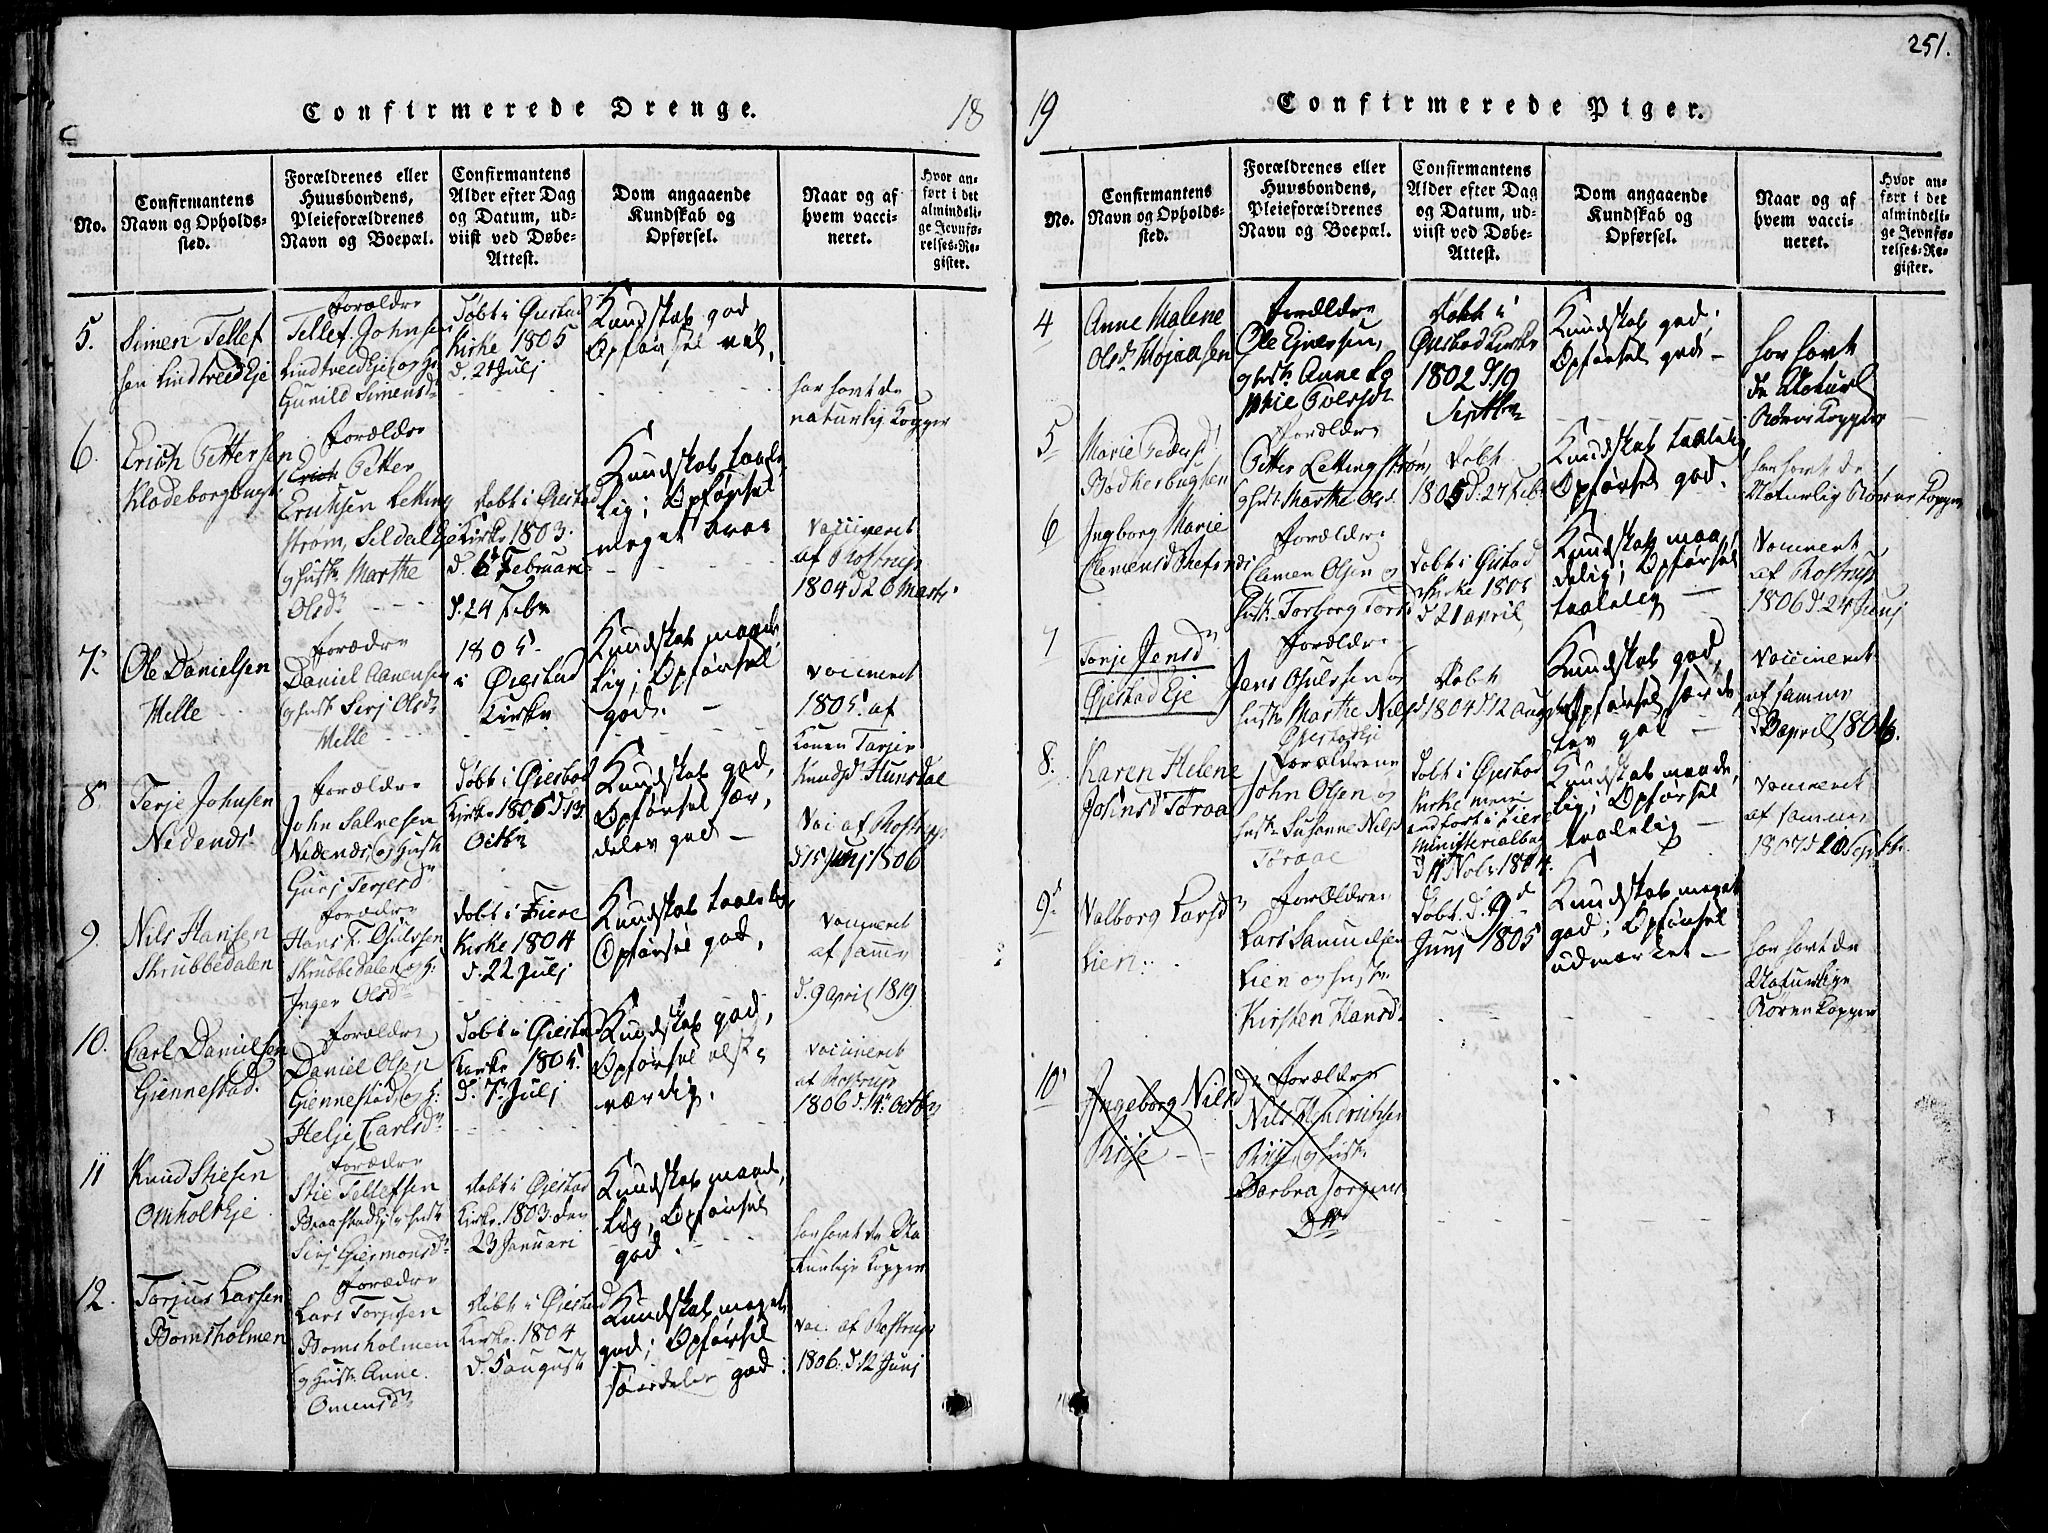 251.
Confirmerede Drenge.
18
No.
Confirmantens
Navn og Opholds-
sted.
Forældrenes eller
Huusbondens,
Pleieforældrenes
Navn og Boepæl.
Confirmantens
Alder efter Dag
og Datum, ud-
viist ved Døbe-
Attest.
Dom angaaende
Kundskab og
Opførsel.
Naar og af
hvem vacci-
neret.
Hvor an-
ført i det
almindeli-
ge Jevnfø-
relses-Re-
gister.
5.
Simen Tellef
sen Lindtveed Eje
Forældre
Tellef Johnsen
Lindtveed Eje, og H:
Gunild Simensdr
Døbt i Øiestad
Kirke 1805
d. 21 Julj
Kundskab god
Opførsel vel.
har havt de
naturlig Kopper
6.
Erich Pettersen
Klodeborgbugt
Forældre
Petter
Eriksen Letting
strøm, Seldal Eje
og Hustr Marthe
Olsdr
Døbt i Øiestad
Kirke 1803.
d. 6 Februari
Kundskab taale
lig; Opførsel
meget brav
vaccineret
af Rostrup
1804 d 26 Marts
7.
Ole Danielsen
Melle
Forældre
Daniel Aanensen
og Hust Serj Olsdr
Melle
d. 24 Febr
1805
i Øiestad
Kirke
Kundskab maade
lig; Opførsel
god.
vaccineret
1805 af
Konen Tarjer
Knudsd Hunsdal
8.
Terje Johnsen
Nedenes
Forældre
John Salvesen
Nedenes, og Hustr
Gurj Terjesdr
Døbt i Øiestad
Kirke 1805 d 13
Octbr
Kundskab god,
Opførsel sær,
deles god
Vac af Rostrup
d 15 Junj 1806
9.
Nils Hansen
Skrubbedalen
Forældre
Hans T. Osulvsen
Skrubbedalen, og H:
Inger Olsdr
døbt i Fiere
Kirke 1804
d. 22 Julj
Kundskab taalelig,
Opførsel god.
Vaccineret
af samme
d. 9 April 1819
10.
Carl Danielsen
Giennestad.
Forældre
Daniel Olsen
Giennestad, og H:
Helje Carlsdr
døbt i Øiestad
Kirke 1805
d. 7 Julj
Kundskab god,
Opførsel elsk
værdig.
Vaccineret
af Rostrup
1806 d. 14 Octbr
11
Knud Stiesen
Omholt Eje
Forældre
Stie Tellefsen
Braastad Eje og Hustr
Serj Giermonsdr
Døbt i Øiestad
Kirke. 1803. den
23 Januari
Kundskab maade,
lig, Opførsel
god.
har havt de Na
turlige Kopper
12.
Torjus Larsen
Bomsholmen
Forældre
Lars Torjusen
Bomsholmen
og Hustr. Anne
Omensdr
Døbt i Øiestad
Kirke. 1804
d. 5 august
Kundskab meget
god; Opførsel
særdeles god.
Vac: af Rostrup
1806. d 12 Junj
19
Confirmerede Piger.
No.
Confirmantens
Navn og Opholds-
sted.
Forældrenes eller
Huusbondens,
Pleieforældrenes
Navn og Boepæl.
Confirmantens
Alder efter Dag
og Datum, ud-
viist ved Døbe-
Attest.
Dom angaaende
Kundskab og
Opførsel.
Naar og af
hvem vacci-
neret.
Hvor an-
ført i det
almindeli-
ge Jevnfø-
relses-Re-
gister.
4
Anne Malene
Olsdr
Forældre
Ole
og Hustr Anne So
phie
Døbt i
Øiestad Kirke
1802 d. 19
Septbr
Kundskab god;
Opførsel god
har havt
de Natur
Kopper
5
Marie Pedersd
Bødkerbugten
Forældre
Petter Lettingstrøm,
og Hustr Marthe Olsd.
Døbt
1805 d. 24 Feb.
Kundskab taalelig
Opførsel god.
har havt de
Naturlig Kopper
6
Ingborg Marie
Clemensd
Forældre
Clemen Olsen og
Hustr. Torborg
Døbt i Øiestad
Kirke 1805
d 21 april
Kundskab maa,
delig; Opførsel
taalelig
Vaccineret
af Rostrup
1806 d. 24 Junj
7
Tarje Jensdr
Øjestad Eje
Forældre
Jens Osulssen og
Hustr. Marthe Nilsd
Øjestadeje
Døbt
1804 d. 12 Aug
Kundskab god,
Opførsel særde
les god
Vaccineret
af samme
d. 3 april 1806.
8.
Karen Helene
Johnsd Tøraa
Forældrene
John Olsen og
Hustr. Susanne Nilsd
Tøraae
Døbt i Øiestad
Kirke men
anført i Fiere
Ministerialbog
d 11 Nobr 1804.
Kundskab maade,
lig; Opførsel
taalelig
Vaccineret
af samme
1807 d 20 Septbr
9
Valborg Larsd
Lien
Forældre
Lars Samuelsen
Lien og Hustr.
Kirsten Hansd.
Døbt. d. 9
Junj 1805
Kundskab meget
god; Opførsel
udmærket
har havt de
Naturlige
Kopper
10
Ingeborg Nilsd
Riise
Forældre
Nils Henrichsen
Riise og Hustr
Barbra Jørgens
Dtr